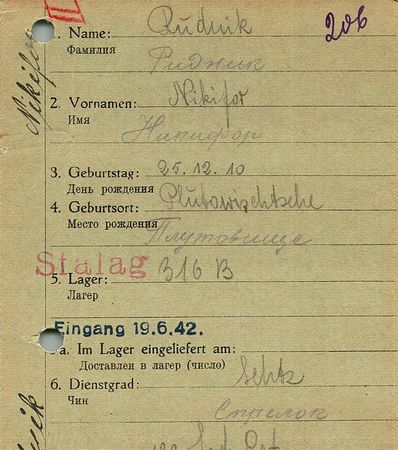 206
1. Name: Rudnik
Фамилия
Рудник
2. Vornamen: Nikifor
Имя
Никифор
3. Geburtstag: 25.12.10
День рождения
4. Geburtsort: Plutowischtsche
Место рождения
Плутовище
Stalag 316 B
5. Lager:
Лагер
Eingang 19.6.42.
a. Im Lager eingeliefert am:
Доставлен в лагер (число)
6. Dienstgrad:
Чин
Стрелок
Nikifor